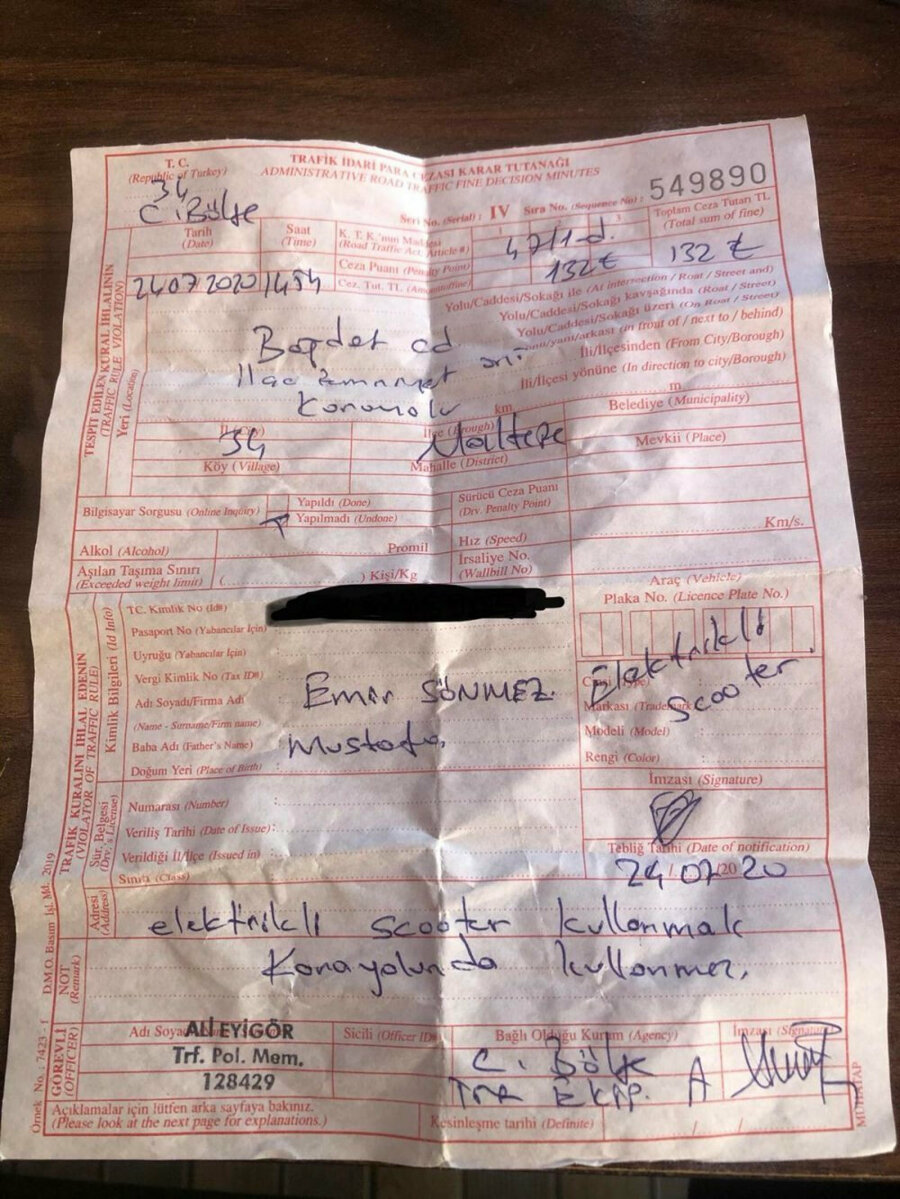 T. C.
(Republic of Turkey)
34
C. Bölge
TRAFİK İDARİ PARA CEZASI KARAR TUTANAĞI
ADMINISTRATIVE ROAD TRAFFIC FINE DECISION MINUTES
Seri No. (Serial) : IV Sıra No. (Sequence No) : 549890
Tarih
(Date)
Saat
(Time)
K. T. K.'nun Maddesi
(Road Traffic Act, Article #)
1
3
47/1-d.
Toplam Ceza Tutarı TL
(Total sum of fine)
Ceza Puanı (Penalty Point)
Cez. Tut. TL
132 ₺
132 ₺
24.07.2020 1454
TESPİT EDİLEN KURAL İHLALİNİN
(TRAFFIC RULE VIOLATION)
Yeri (Location)
Yolu/Caddesi/Sokağı ile (At intersection / Roat / Street and)
Yolu/Caddesi/Sokağı kavşağında (Roat / Street)
Yolu/Caddesi/Sokağı üzeri (On Roat / Street)
Önü/yanı/arkası (in front of / next to / behind)
Bağdat cd
önü
İli/İlçesinden (From City/Borough)
İli/İlçesi yönüne (In direction to city/Borough)
km m
34
İlçe (Brough)
Maltepe
Belediye (Municipality)
Köy (Village)
Mahalle (District)
Mevkii (Place)
Bilgisayar Sorgusu (Online Inquiry)
Yapıldı (Done)
Yapılmadı (Undone)
Sürücü Ceza Puanı
(Drv. Penalty Point)
Alkol (Alcohol) Promil
Hız (Speed) Km/s.
Aşılan Taşıma Sınırı
(Exceeded weight limit) ( ) Kişi/Kg
İrsaliye No.
(Wallbill No)
TRAFİK KURALINI İHLAL EDENİN
(VIOLATOR OF TRAFFIC RULE)
Kimlik Bilgileri (Id Info)
TC. Kimlik No (Id#)
Pasaport No (Yabancılar İçin)
Uyruğu (Yabancılar İçin)
Vergi Kimlik No (Tax ID#)
Adı Soyadı/Firma Adı
(Name - Surname/Firm name)
Emir SÖNMEZ.
Baba Adı (Father's Name)
Mustafa
Doğum Yeri (Place of Birth)
Araç (Vehicle)
Plaka No. (Licence Plate No.)
Elektrikli
scooter.
Cinsi (Type)
Markası (Trademark)
Modeli (Model) :
Rengi (Color) :
İmzası (Signature)
Sür. Belgesi
(Drv.'s License)
Numarası (Number) :
Veriliş Tarihi (Date of Issue) :
Verildiği İl/İlçe (Issued in) :
Sınıfı (Class)
Tebliğ Tarihi (Date of notification)
24/07/2020
Adresi
(Address)
NOT
(Remark)
elektrikli scooter kullanmak
Karayolunda kullanmez.
GÖREVLİ
(OFFICER)
ALİ EYİGÖR
Trf. Pol. Mem.
128429
Sicili (Officer ID#)
Bağlı Olduğu Kurum (Agency)
C. Bölge
Tra EKİP. A
İmzası (Signature)
Açıklamalar için lütfen arka sayfaya bakınız.
(Please look at the next page for explanations.)
Kesinleşme tarihi (Definite) / /
Örnek No. : 7423- 1 D.M.O. Basım İşl. Md. 2019